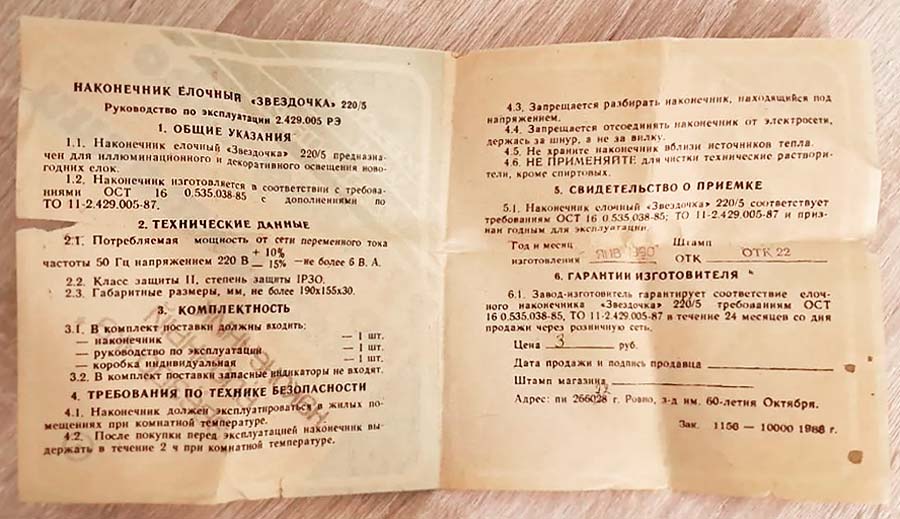 НАКОНЕЧНИК ЕЛОЧНЫЙ «ЗВЕЗДОЧКА» 220/5
Руководство по эксплуатации 2.429.005 РЭ
1. ОБЩИЕ УКАЗАНИЯ
1.1. Наконечник елочный «Звездочка» 220/5 предназна-
чен для иллюминационного и декоративного освещения ново-
годних елок.
1.2. Наконечник изготовляется в соответствии с требова-
ниями ОСТ 16 0.535.038-85 с дополнениями по
ТО 11-2.429.005-87.
2. ТЕХНИЧЕСКИЕ ДАННЫЕ
2.1. Потребляемая мощность от сети переменного тока
частоты 50 Гц напряжением 220 В + 10% — 15% —не более 6 В. А.
2.2. Класс защиты II, степень защиты IP30.
2.3. Габаритные размеры, мм, не более 190х155х30.
3. КОМПЛЕКТНОСТЬ
3.1. В комплект поставки должны входить:
— наконечник — 1 шт.
— руководство по эксплуатации — 1 шт.
— коробка индивидуальная — 1 шт.
3.2. В комплект поставки запасные индикаторы не входят.
4. ТРЕБОВАНИЯ ПО ТЕХНИКЕ БЕЗОПАСНОСТИ
4.1. Наконечник должен эксплуатироваться в жилых по-
мещениях при комнатной температуре.
4.2. После покупки перед эксплуатацией наконечник вы-
держать в течение 2 ч при комнатной температуре.
4.3. Запрещается разбирать наконечник, находящийся под
напряжением.
4.4. Запрещается отсоединять наконечник от электросети,
держась за шнур, а не за вилку.
4.5. Не храните наконечник вблизи источников тепла.
4.6. НЕ ПРИМЕНЯЙТЕ для чистки технические раствори-
тели, кроме спиртовых.
5. СВИДЕТЕЛЬСТВО О ПРИЕМКЕ
5.1. Наконечник елочный «Звездочка» 220/5 соответствует
требованиям ОСТ 16 0.535.038-85; ТО 11-2.429.005-87 и приз-
нан годным для эксплуатации.
Год и месяц изготовления ЯНВ 1990 Штамп ОТК ОТК 22
6. ГАРАНТИИ ИЗГОТОВИТЕЛЯ
6.1. Завод-изготовитель гарантирует соответствие елоч-
ного наконечника «Звездочка» 220/5 требованиям ОСТ
16 0.535.038-85, ТО 11-2.429.005-87 в течение 24 месяцев со дня
продажи через розничную сеть.
Цена 3 руб.
Дата продажи и подпись продавца
Штамп магазина
Адрес: пи 266028 г. Ровно, з-д им. 60-летия Октября.
Зак. 1156 — 10000 1988 г.